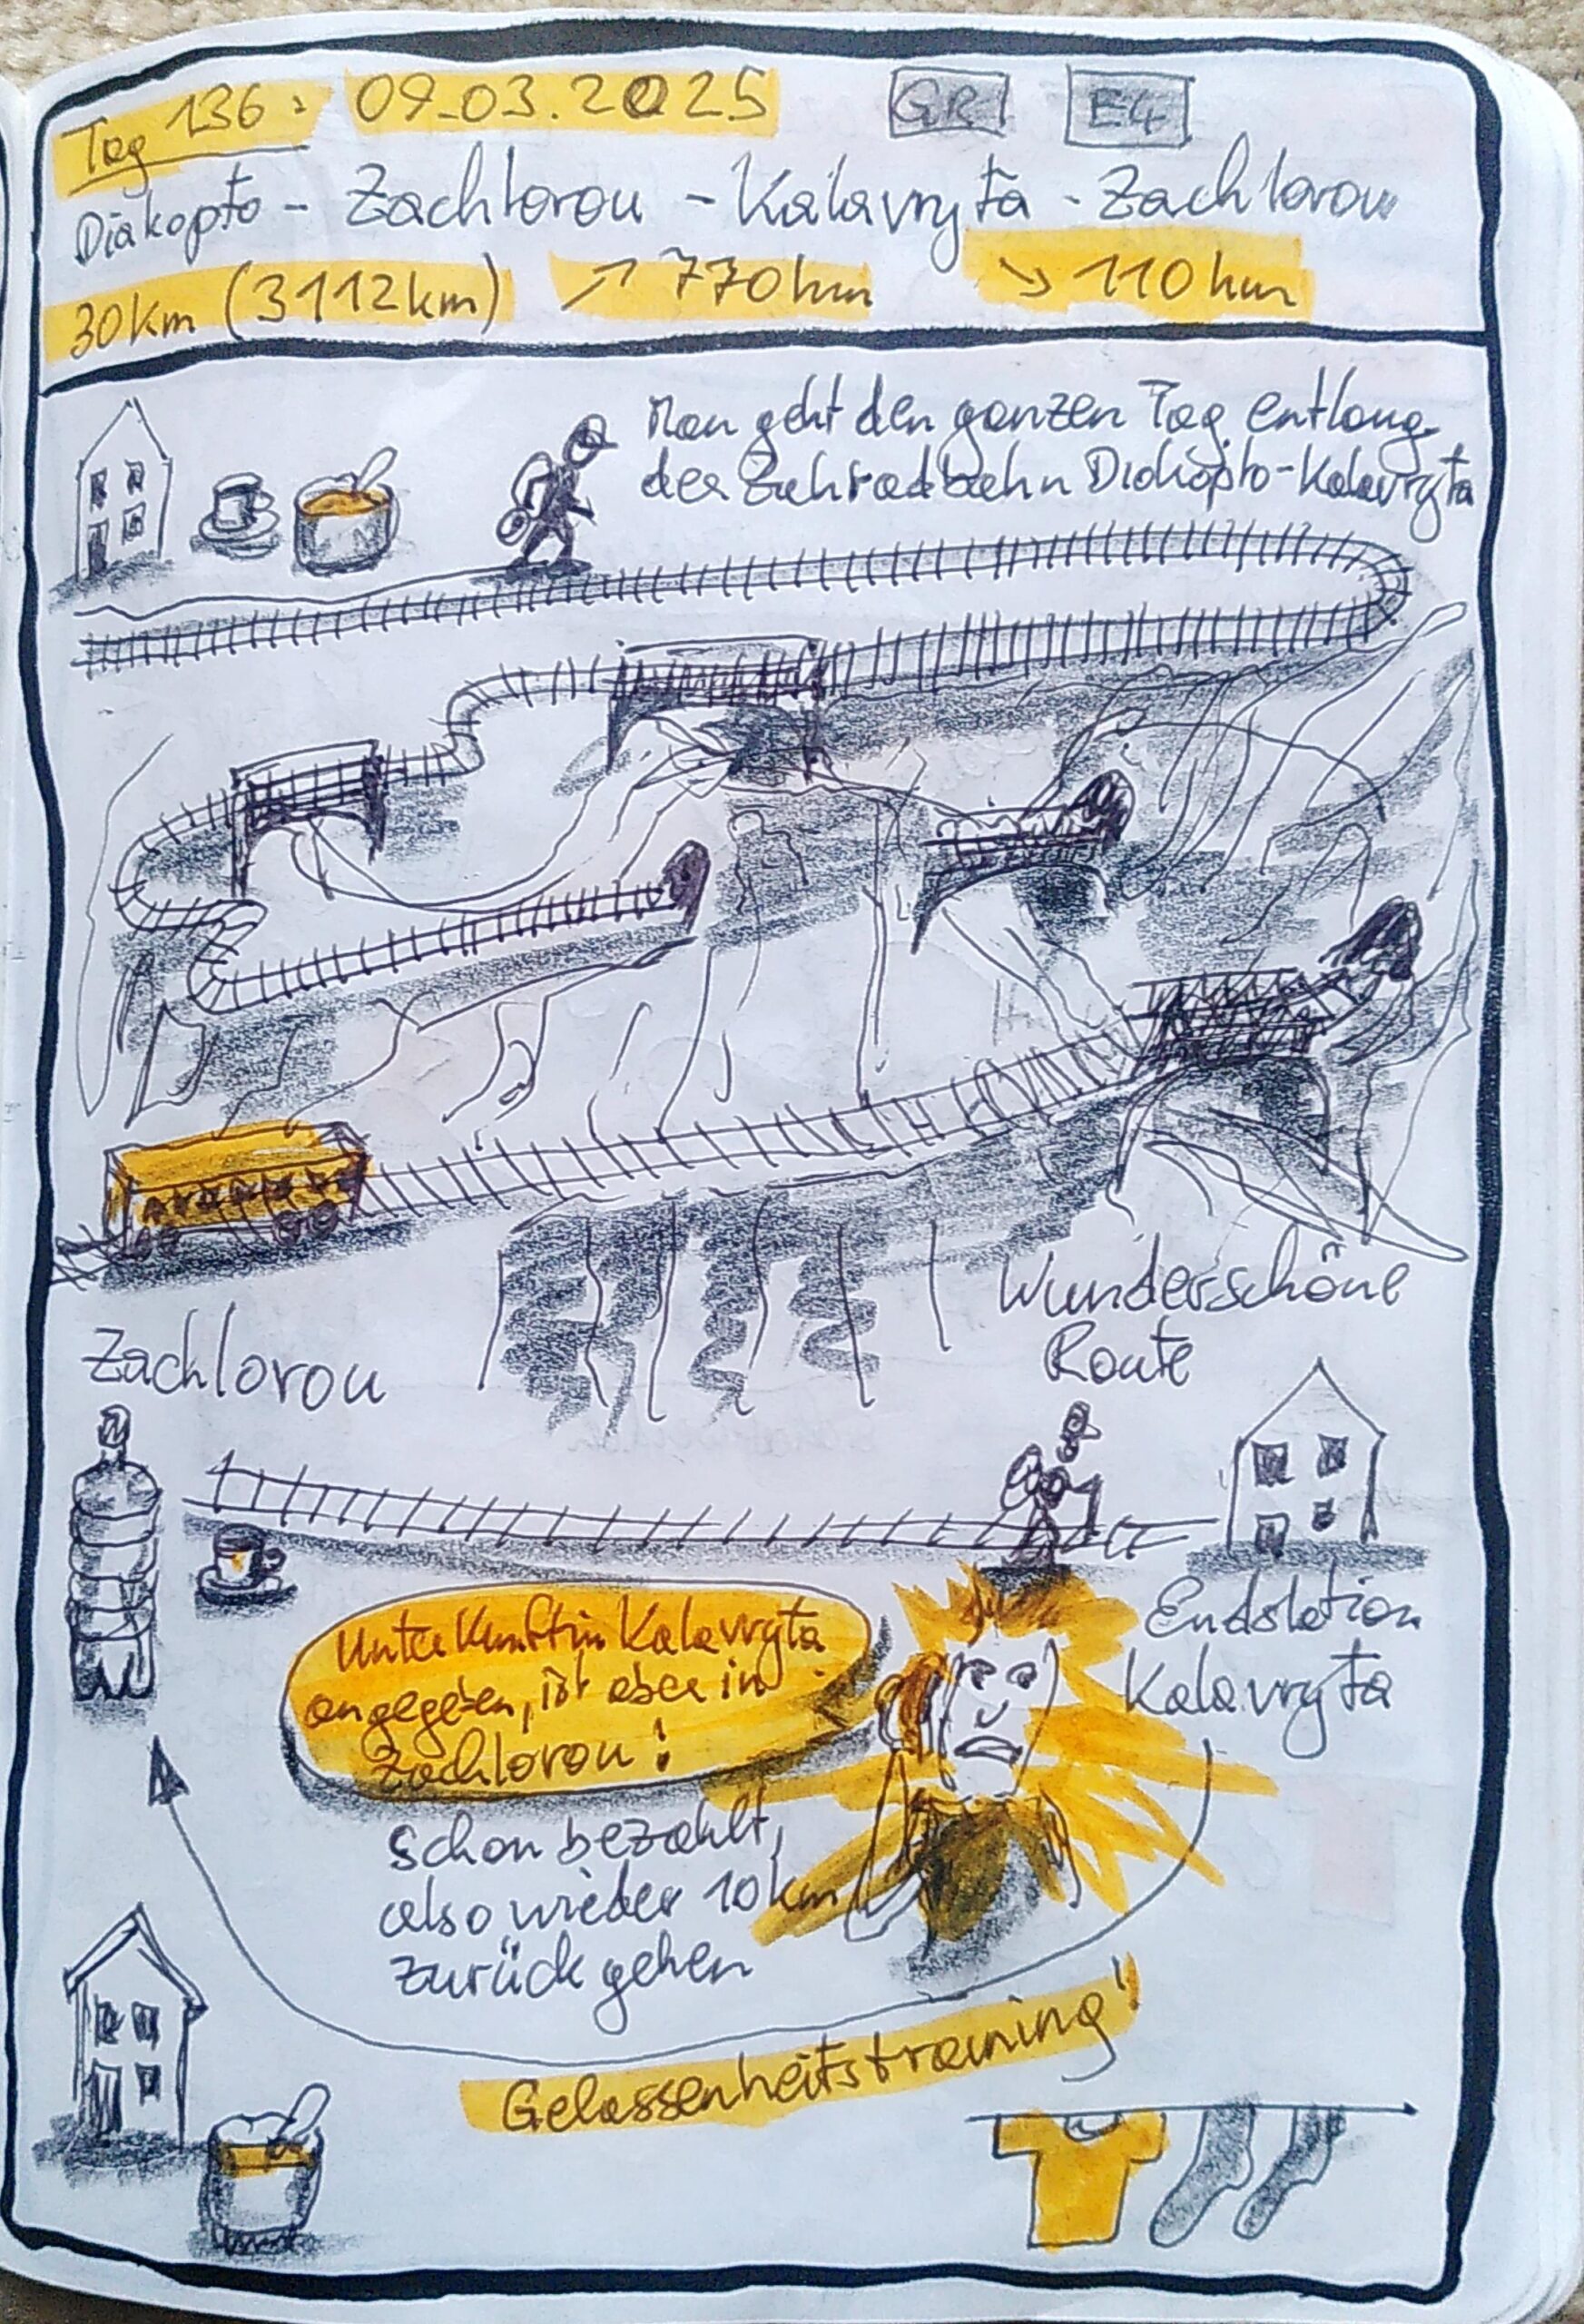 Tag 136: 09.03.2025 GR E4
Diakopto - Zachlorou - Kalavryta - Zachlorou
30km (3112km) ↗ 770hm ↘ 110hm
Man geht den ganzen Tag entlang
der Zahnradbahn Diakopto-Kalavryta
Wunderschöne
Route
Zachlorou
Endstation
Kalavryta
Unterkunft in Kalavryta
angegeben, ist aber in
Zachlorou!
schon bezahlt,
also wieder 10km
zurück gehen
Gelassenheitstraining!